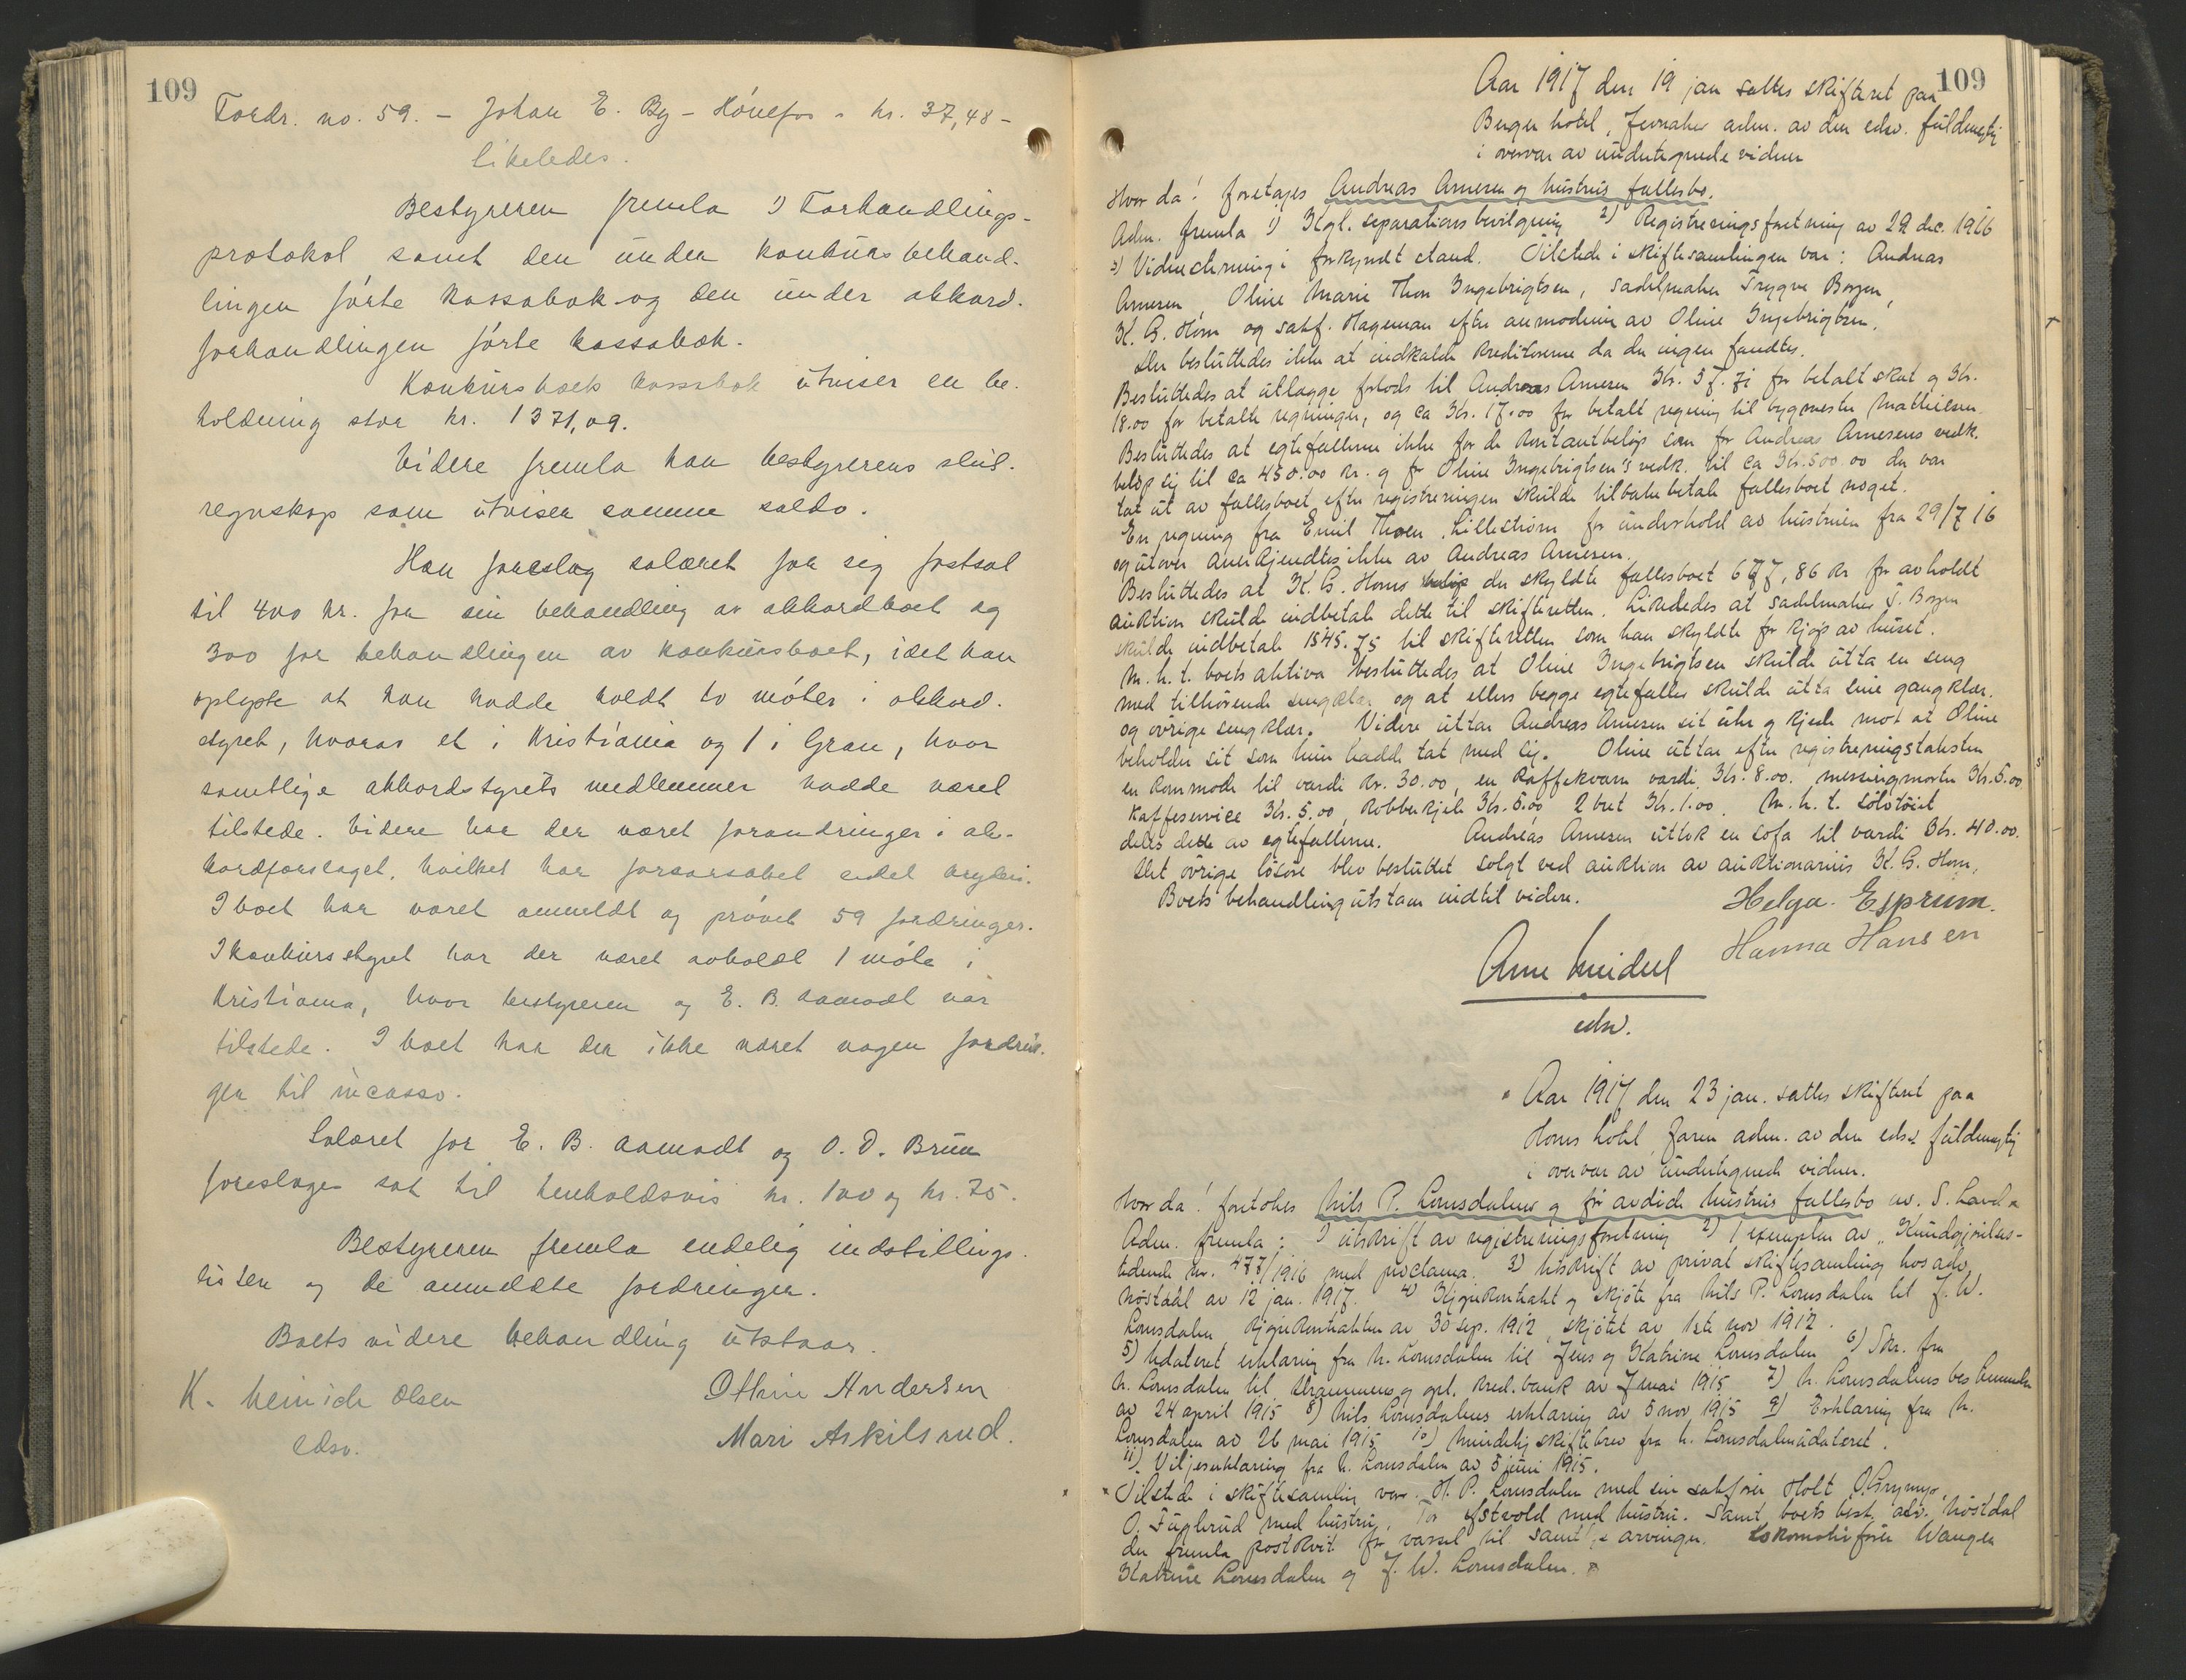 109
Fordr. no. 59. – Johan E. By – Hönefos – kr. 37,48 –
likeledes.
Bestyreren fremla 1) Forhandlings-
protokol samt den under konkursbehand-
lingen förte kassabok og den under akkord-
forhandlingen förte kassabok.
Konkursboets kassabok utviser en be-
holdning stor kr. 1371,09.
Videre fremla han bestyrerens slut-
regnskap som utviser samme saldo.
Han foreslog salæret for sig fastsat
til 400 kr. for sin behandling av akkordboet og
300 for behandlingen av konkursboet, idet han
oplyste at han hadde holdt to möter i akkord-
styret, hvorav et i Kristiania og 1 i Gran, hvor
samtlige akkordstyrets medlemmer hadde været
tilstede. Videre har der været forandringer i ak-
kordforslaget, hvilket har forarsaket endel bryderi.
I boet har været anmeldt og prövet 59 fordringer.
I konkursstyret har der været avholdt 1 möte i
Kristiania, hvor bestyreren og E. B. Aamodt var
tilstede. I boet har der ikke været nogen fordrin-
ger til incasso.
Salæret for E. B. Aamodt og O. D. Brun
foreslages sat til henholdsvis kr. 100 og kr. 75.
Bestyreren fremla endelig indstillings-
listen og de anmeldte fordringer.
Boets videre behandling utstaar.
K. Heinich Olsen
edsv.
Othine Andersen
Mari Askilsrud.
109
Aar 1917 den 19 jan sattes skifteret paa
Berger hotel, Jevnaker adm. av den edsv. fuldmegtig
i overvær av undertegnede vidner
Hvor da! foretages Andreas Arnesen og hustrus fællesbo.
Adm. fremla 1) Kgl. separationsbevilgning 2) Registreringsforretning av 29 dec. 1916
3) Vidnestevning i forkyndt stand. Tilstede i skiftesamlingen var: Andreas
Arnesen, Oline Marie Thon Ingebrigtsen, sadelmaker Trygve Borgen,
K. G. Horn og sakf. Hageman efter anmodning av Oline Ingebrigtsen.
Der besluttedes ikke at indkalde kreditorerne da der ingen fandtes.
Besluttedes at utlægge forlods til Andreas Arnesen Kr. 37.71 for betalt skat og Kr.
18.00 for betalte regninger, og ca Kr. 17.00 for betalt regning til bygmester Mathiesen
Besluttedes at egtefællerne ikke for de kontantbeløp som for Andreas Arnesens vedk.
beløp sig til ca 450.00 kr. og for Oline Ingebrigtsen's vedk. til ca Kr. 500.00 der var
tat ut av fællesboet efter registreringen skulde tilbakebetale fællesboet noget.
En regning fra Emil Thoen, Lillestrøm for underhold av hustruen fra 29/7 16
og utover anerkjendtes ikke av Andreas Arnesen.
Besluttedes at K. G. Horn der skyldte fællesboet 677,86 kr for avholdt
auktion skulde indbetale dette til skifteretten. Likeledes at sadelmaker T. Borgen
skulde indbetale 1545.75 til skifteretten som han skyldte for kjøp av huset.
M. h. t. boets aktiva besluttedes at Oline Ingebrigtsen skulde utta en seng
med tilhörende sengeklær og at ellers begge egtefæller skulde utta sine gangklær.
og övrige sengklær. Videre uttar Andreas Arnesen sit uhr og kjede mot at Oline
beholder sit som hun hadde tat med sig. Oline uttar efter registreringstaksten
en kommode til værdi kr. 30.00, en kaffekvern værdi Kr. 8.00. messingmorter Kr. 5.00
kaffeservice Kr. 5.00, kobberkjele Kr. 5.00 2 bret Kr. 1.00. M. h. t. sölvtöiet
deles dette av egtefællerne. Andreas Arnesen uttok en sofa til værdi Kr. 40.00.
Det övrige lösöre blev besluttet solgt ved auktion av auktionarius K. G. Horn,
Boets behandling utstaar indtil videre.
Helga Esprum.
Hanna Hansen
Arne Meidell
edsv.
Aar 1917 den 23 jan. sattes skifteret paa
Horns hotel, Jaren adm. av den edsv fuldmegtig
i overvær av undertegnede vidner.
Hvor da! foretokes Nils P. Lomsdalens og för avdöde hustrus fællesbo av. S. Land
Adm. fremla: 1) utskrift av registreringsforretning 2) 1 exemplar av „Kundgjörelses-
tidende nr. 477/1916 med proclama. 3) Utskrift av privat skiftesamling hos adv.
Nöstdal av 12 jan. 1917. 4) Kjöpekontrakt og skjöte fra Nils P. Lomsdalen til J. W.
Lomsdalen, kjöpekontrakten av 30 sep. 1912, skjötet av 1ste nov 1912.
5) Udateret erklæring fra N. Lomsdalen til Jens og Katrine Lomsdalen 6) Skr. fra
N. Lomsdalen til Drammens og opl. kred. bank av 7 mai 1915 7) N. Lomsdalens bestemmelse
av 24 april 1915 8) Nils Lomsdalens erklæring av 5 nov 1915 9) Erklæring fra N.
Lomsdalen av 26 mai 1915 10) Mindelig skiftebrev fra N. Lomsdalen udateret.
11) Viljeserklæring fra N. Lomsdalen av 5 juni 1915.
Tilstede i skiftesamling var. N. P. Lomsdalen med sin sakförer Holt
O. Fuglerud med hustru, Tor med hustru. Samt boets best. adv. Nöstdal
der fremla postkvit for varsel til samtlige arvinger. Lokomotivförer Wangen
Katrine Lomsdalen og J. W. Lomsdalen.